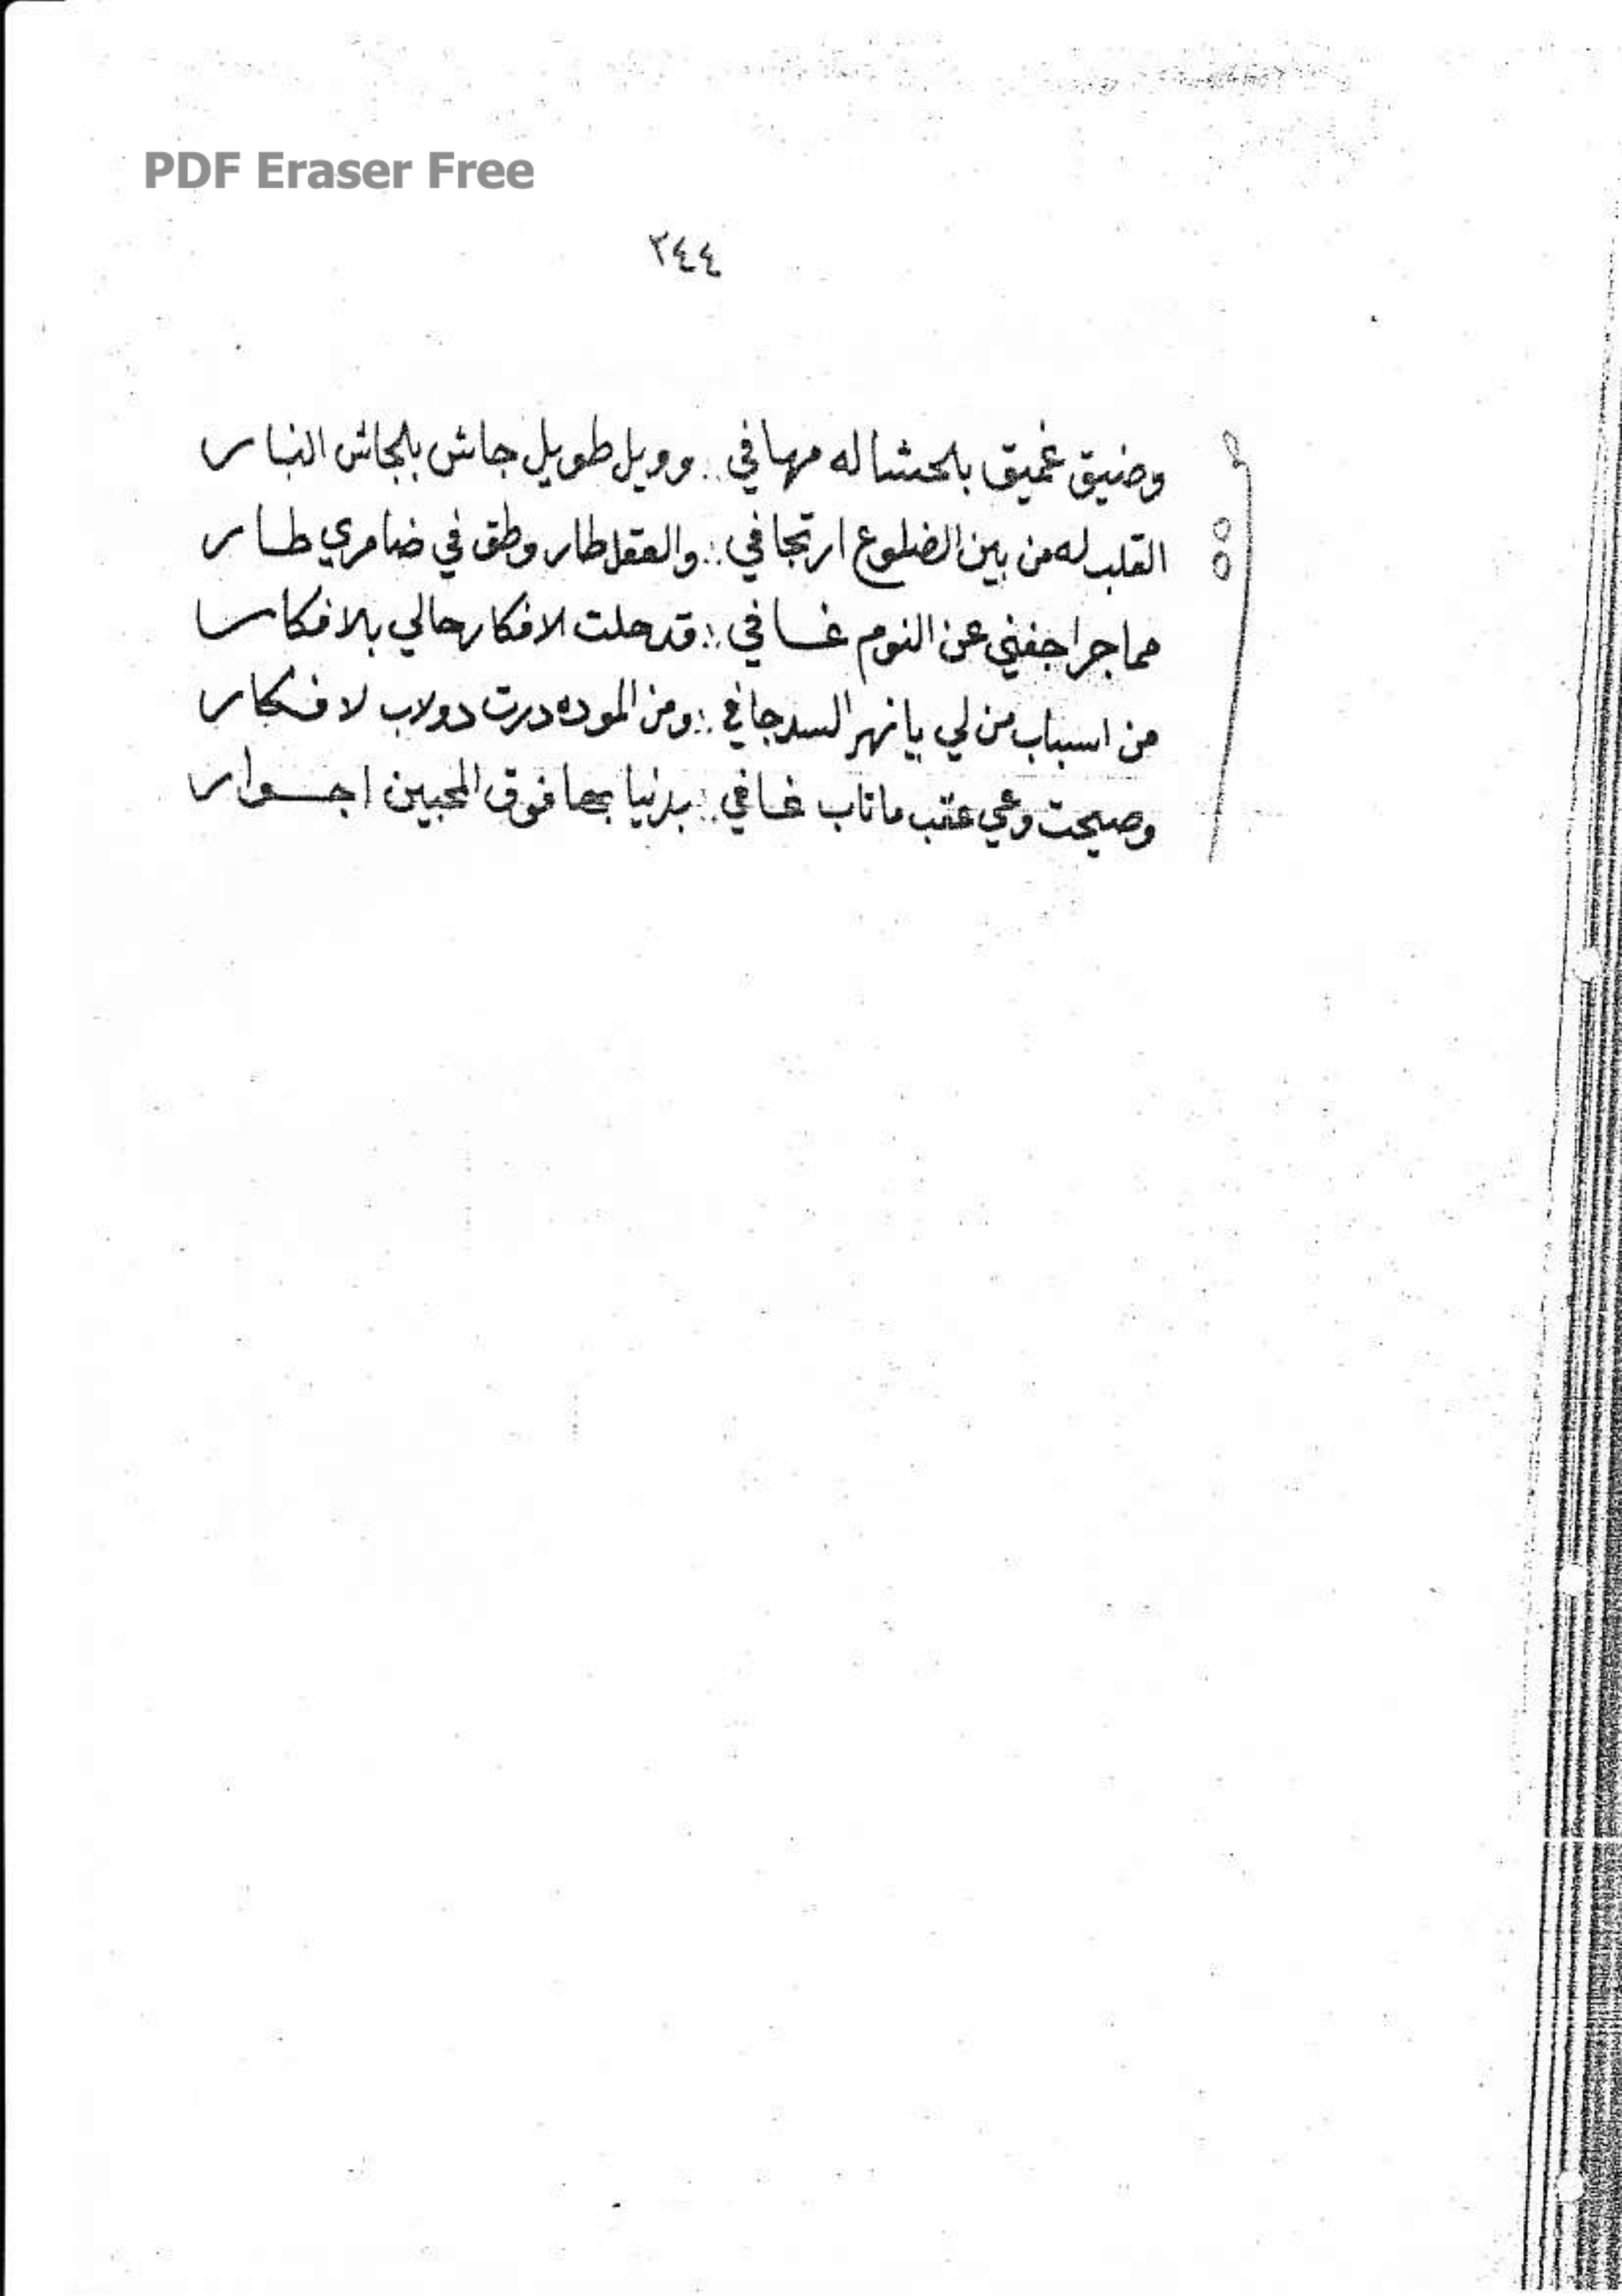 PDF Eraser Free
٢٤٤
وضيق غميق بلحشا له مهافي .. وويل طويل جاش بلجاش النار
القلب له من بين الضلوع ارتجافي .. والعقل طار وطق في ضامري طار
مما جرا جفني عن النوم غافي .. قد حلت الافكار حالي بلافكار
من اسباب من لي يا نهر السد جافي .. ومن الموده درت دولاب لافكار
وصيحت وعي عقب ماتاب غافي .. بدنيا بها فوق المحبين اجوار